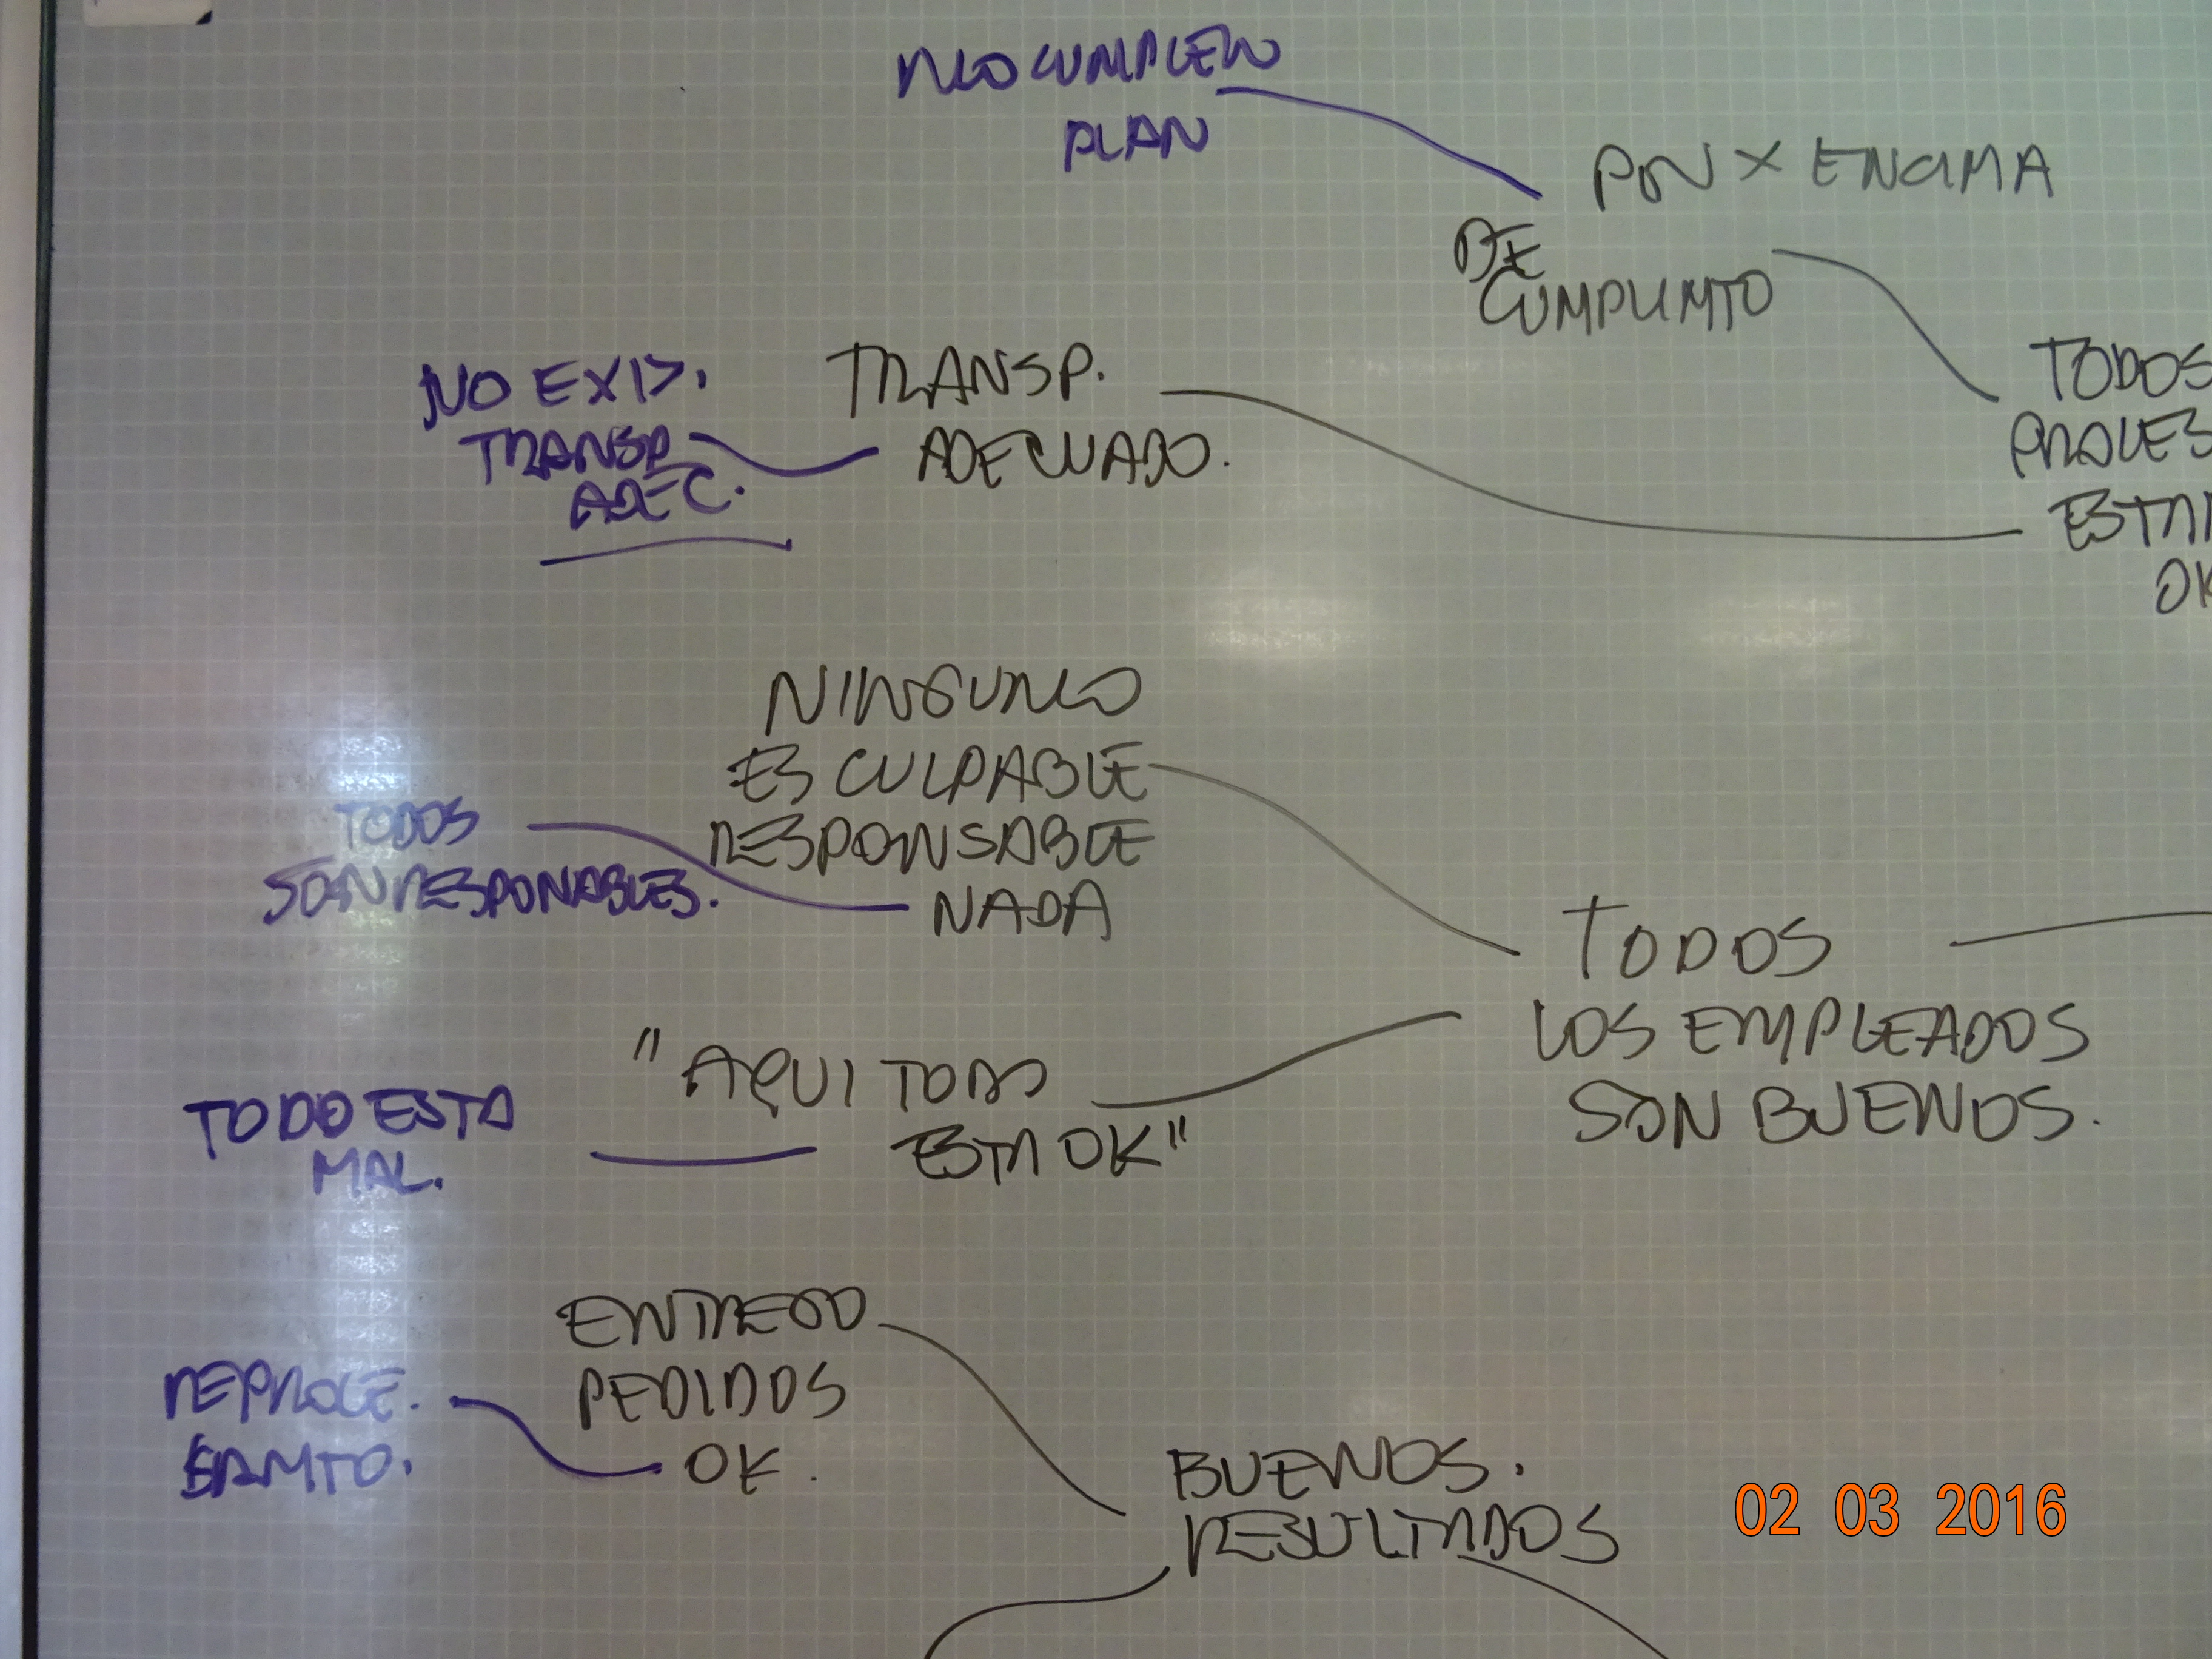 NO CUMPLEN
PLAN
PON X ENCIMA
DE
CUMPLIMTO
TODOS
PROCES
ESTAN
OK
NO EXIS.
TRANSP.
ADEC.
TRANSP.
ADECUADO.
NINGUNO
ES CULPABLE
RESPONSABLE
NADA
TODOS
SON RESPONABLES.
TODOS
LOS EMPLEADOS
SON BUENOS.
"AQUI TODO
ESTA OK"
TODO ESTA
MAL.
ENTREGO
PEDIDOS
OK.
REPROCE.
SAMTO.
BUENOS.
RESULTADOS
02 03 2016